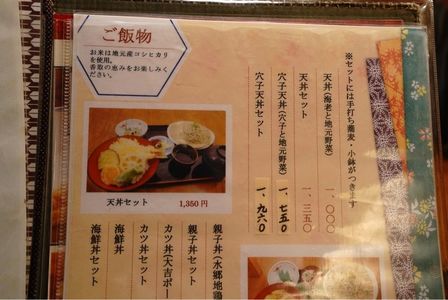 ご飯物
お米は地元産コシヒカリ
を使用。
香取の恵みをお楽しみく
ださい。
※セットには手打ち蕎麦・小鉢がつきます
天丼(海老と地元野菜) 一、〇〇〇
天丼セット 一、三五〇
穴子天丼(穴子と地元野菜) 一、七五〇
穴子天丼セット 一、九六〇
天丼セット 1,350円
親子丼(水郷地鶏
親子丼セット
カツ丼(大吉ポー
カツ丼セット
海鮮丼
海鮮丼セット